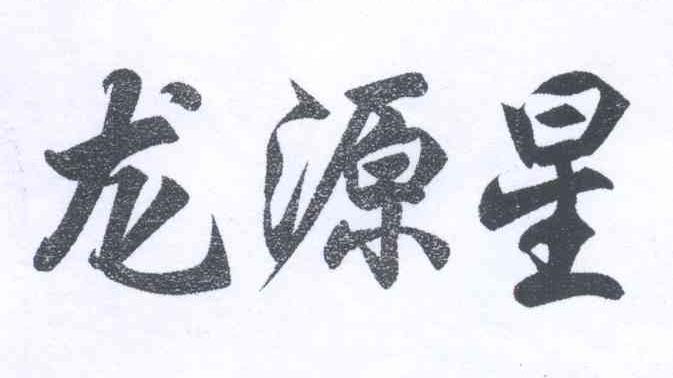 龙源星